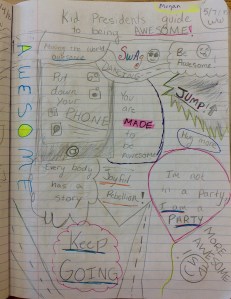 Megan
Kid Presidents guide
to being AWESOME!
AWESOME
Making the world
awesome
Put
down
your
PHONE
SWAg
DANCING
Be
Awesome.
JUMP!
You
are
MADE
to
be
awesome
Every body
has a
story
Joyful
Rebellion!
I'm not
in a
Party
I am
PARTY
MORE
AWESOME
Keep
GOING